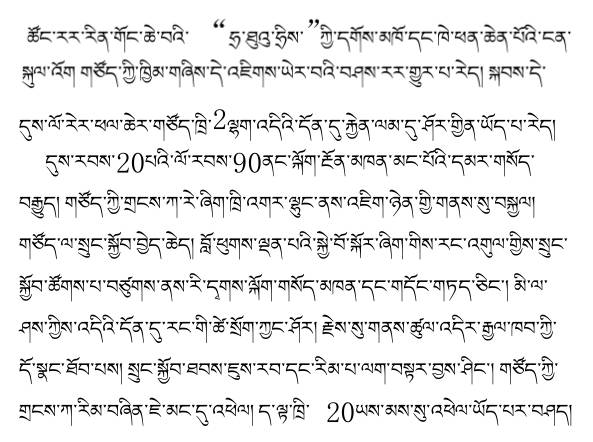 ཚོང་རར་རིན་གོང་ཆེ་བའི་ “ཧྲ་ཐུའུ་ཧྲིས་”ཀྱི་དགོས་མཁོ་དང་ཁེ་ཕན་ཆེན་པོའི་ངན་
སྐུལ་འོག གཙོད་ཀྱི་ཁྱིམ་གཞིས་དེ་འཇིགས་ཡེར་བའི་བཤས་རར་གྱུར་པ་རེད། སྐབས་དེ་
དུས་ལོ་རེར་ཕལ་ཆེར་གཙོད་ཁྲི་2ལྷག་འདིའི་དོན་དུ་རྐྱེན་ལམ་དུ་ཤོར་གྱིན་ཡོད་པ་རེད།
དུས་རབས་20པའི་ལོ་རབས་90ནང་ལྐོག་རྔོན་མཁན་མང་པོའི་དམར་གསོད་
བརྒྱུད། གཙོད་ཀྱི་གྲངས་ཀ་རེ་ཞིག་ཁྲི་འགར་ལྷུང་ནས་འཇིག་ཉེན་གྱི་གནས་སུ་བསྐྱལ།
གཙོད་ལ་སྲུང་སྐྱོབ་བྱེད་ཆེད། བློ་ཕུགས་ལྡན་པའི་སྐྱེ་བོ་སྐོར་ཞིག་གིས་རང་འགུལ་གྱིས་སྲུང་
སྐྱོབ་ཚོགས་པ་བཙུགས་ནས་རི་དྭགས་ལྐོག་གསོད་མཁན་དང་གདོང་གཏད་ཅིང་། མི་ལ་
ཤས་ཀྱིས་འདིའི་དོན་དུ་རང་གི་ཚེ་སྲོག་ཀྱང་ཤོར། རྗེས་སུ་གནས་ཚུལ་འདིར་རྒྱལ་ཁབ་ཀྱི་
དོ་སྣང་ཐོབ་པས། སྲུང་སྐྱོབ་ཐབས་ཇུས་རབ་དང་རིམ་པ་ལག་བསྟར་བྱས་ཤིང་། གཙོད་ཀྱི་
གྲངས་ཀ་རིམ་བཞིན་ཇེ་མང་དུ་འཕེལ། ད་ལྟ་ཁྲི་ 20ཡས་མས་སུ་འཕེལ་ཡོད་པར་བཤད།